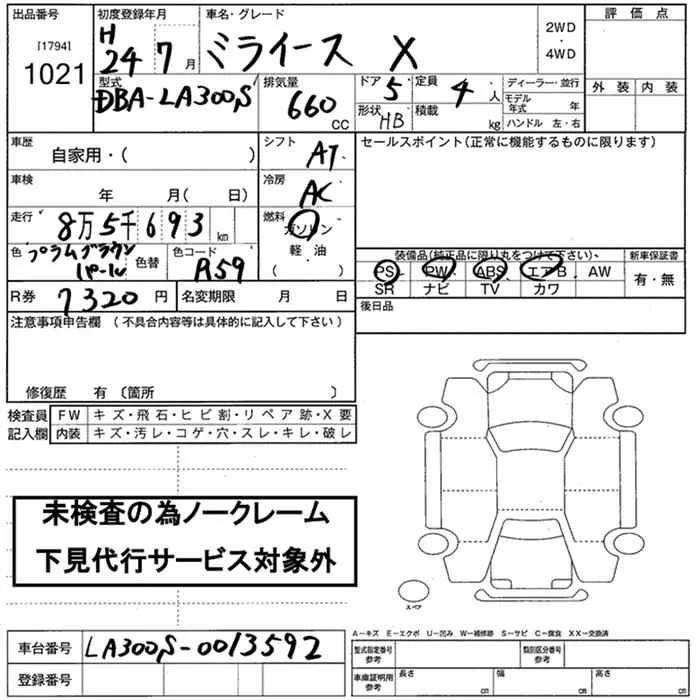 出品番号 初度登録年月 車名・グレード 評価点
[1794] H 2WD
1021 24 7月 ミライース X ・
4WD
型式 排気量 ドア 定員 ディーラー・並行 外装 内装
DBA-LA300S 660 CC 5 4人 モデル年式 年
形状 HB 積載 kg ハンドル 左・右
車歴 シフト セールスポイント(正常に機能するものに限ります)
自家用・( ) AT
車検 冷房
年 月( 日) AC
走行 8万5千693km 燃料
ガソリン
色 プラムブラウン 色替 色コード 軽・油 装備品(純正品に限り丸をつけて下さい) 新車保証書
パール R59 ( ) PS PW ABS エアB AW 有・無
SR ナビ TV カワ
R券 7320円 名変期限 月 日 後日品
注意事項申告欄 (不具合内容等は具体的に記入して下さい)
修復歴 有 〔箇所 〕
検査員 FW キズ・飛石・ヒビ割・リペア跡・X要
記入欄 内装 キズ・汚レ・コゲ・穴・スレ・キレ・破レ
未検査の為ノークレーム
下見代行サービス対象外
スペア
A-キズ E-エクボ U-凹み W-補修跡 S-サビ C-腐食 XX-交換済
車台番号 LA300S-0013592 型式指定番号 参考 類別区分番号 参考
登録番号 車庫証明用 参考 長さ cm 幅 cm 高さ cm